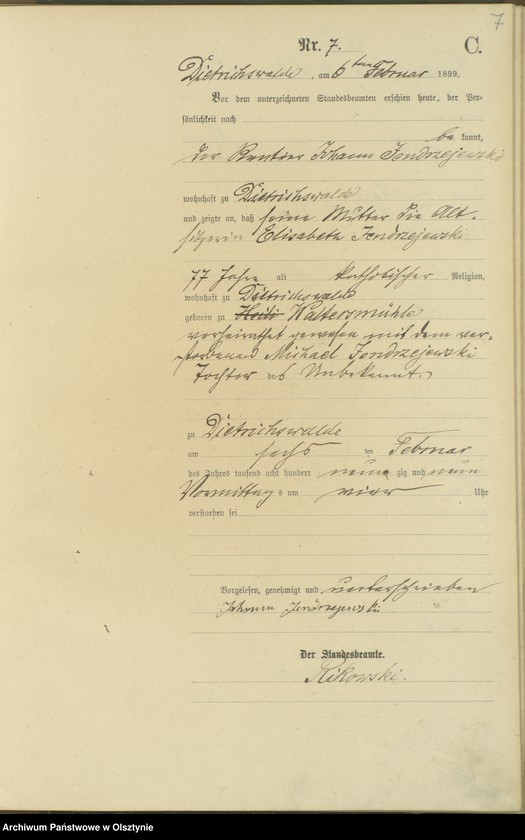 7
Nr. 7. C.
Dietrichswalde, am 6ten Februar 1899.
Vor dem unterzeichneten Standesbeamten erschien heute, der Per-
sönlichkeit nach
be kannt,
der Rentier Johann Jendrzejewski
wohnhaft zu Dietrichswalde
und zeigte an, daß seine Mutter die Alt-
sitzerin Elisabeth Jendrzejewski
77 Jahre alt katholischer Religion,
wohnhaft zu Dietrichswalde
geboren zu Waltersmühle
verheirathet gewesen mit dem ver-
storbenen Michael Jendrzejewski
Tochter des Unbekannt.
zu Dietrichswalde
am sechs ten Februar
des Jahres tausend acht hundert neun zig und neun
Vormittag s um vier Uhr
verstorben sei
Vorgelesen, genehmigt und unterschrieben
Johann Jendrzejewski
Der Standesbeamte.
Rikowski.
Archiwum Państwowe w Olsztynie